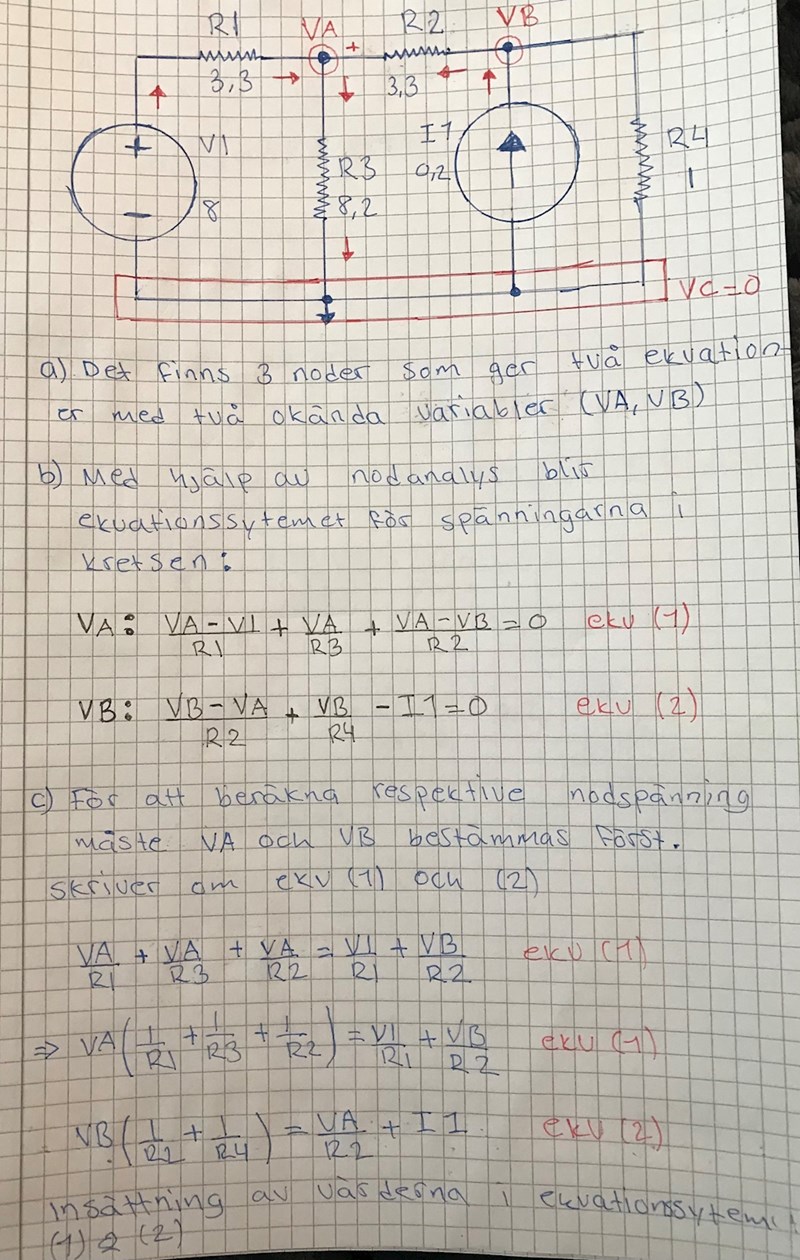 R1 VA + R2 VB
3,3 3,3
+ V1 I1 R4
R3 0,2 1
− 8 8,2
VC=0
a) Det finns 3 noder som ger två ekvation
er med två okända variabler (VA, VB)
b) Med hjälp av nodanalys blir
ekvationssytemet för spänningarna i
kretsen:
VA: (VA-V1)/R1 + VA/R3 + (VA-VB)/R2 = 0 ekv (1)
VB: (VB-VA)/R2 + VB/R4 - I1=0 ekv (2)
c) För att beräkna respektive nodspänning
måste VA och VB bestämmas först.
skriver om ekv (1) och (2)
VA/R1 + VA/R3 + VA/R2 = V1/R1 + VB/R2 ekv (1)
⇒ VA(1/R1 + 1/R3 + 1/R2) = V1/R1 + VB/R2 ekv (1)
VB(1/R2 + 1/R4) = VA/R2 + I1 ekv (2)
insättning av värderna i ekvationssytem
(1) & (2)